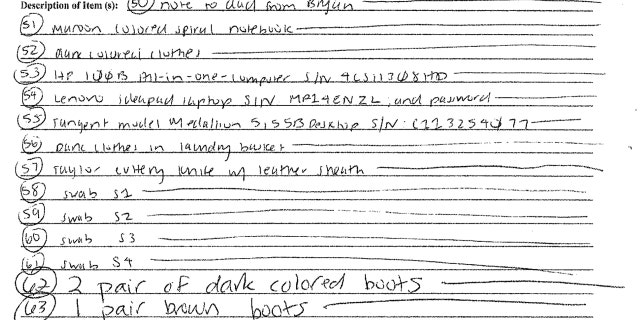 Description of Item (s): (50) note to dad from Bryan
(51) Maroon colored spiral notebook
(52) Dark colored clothes
(53) HP 100B All-in-one-computer S/N
(54) Lenovo ideapad laptop S/N MP14ENZL, and password
(55) Tangent model Medallion Desktop S/N:
(56) Dark clothes in laundry basket
(57) Taylor cutlery knife w/ leather sheath
(58) swab S1
(59) swab S2
(60) swab S3
(61) swab S4
(62) 2 pair of dark colored boots
(63) 1 pair brown boots